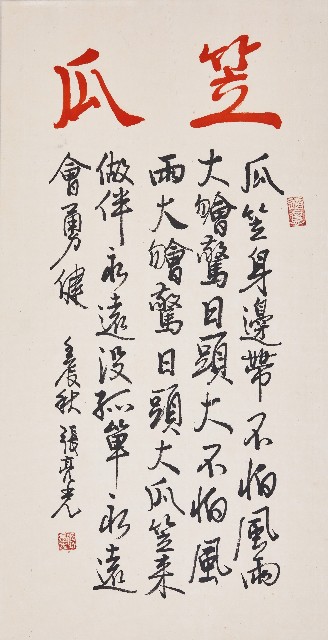 笠瓜
瓜笠身邊帶不怕風雨
大膾驚日頭大不怕風
雨大膾驚日頭大瓜笠来
做伴永遠没孤單永遠
會勇健
壬辰秋張亮光